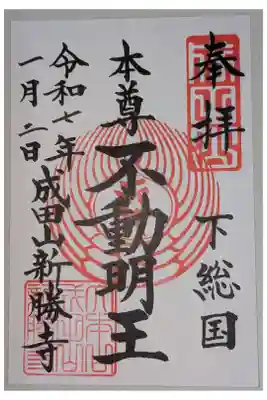 奉拝
下総国
本尊不動明王
成田山新勝寺
令和七年
一月二日